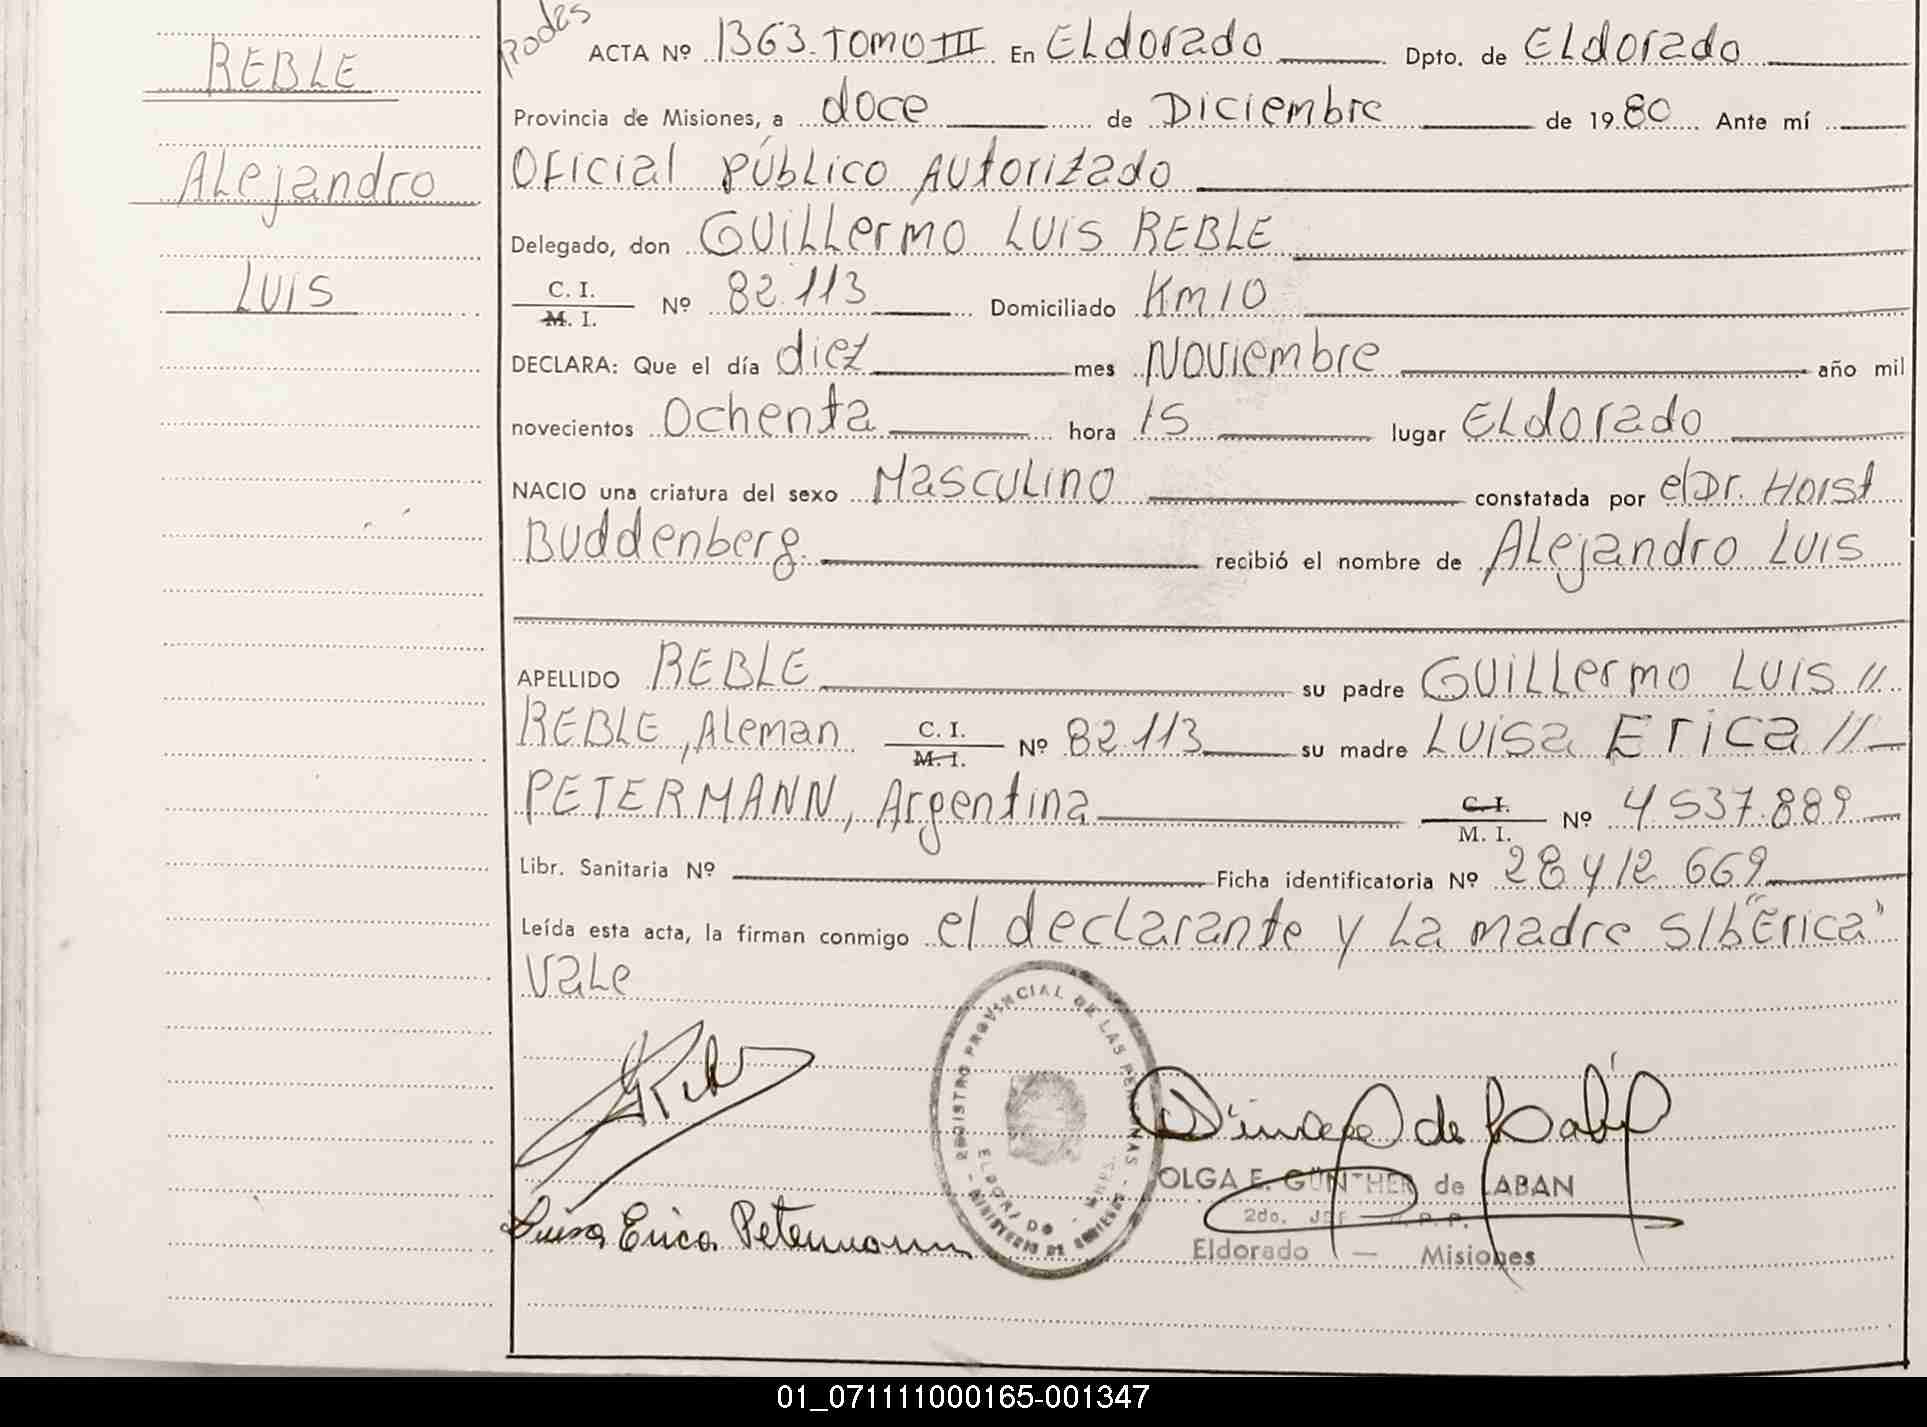 REBLE
Alejandro
Luis
ACTA Nº 1363. Tomo III En Eldorado Dpto. de Eldorado
Provincia de Misiones, a doce de Diciembre de 1980 Ante mí
Oficial Público Autorizado
Delegado, don Guillermo Luis REBLE
C. I.
M. I. Nº 82.113 Domiciliado Km 10
DECLARA: Que el día diez mes Noviembre año mil
novecientos Ochenta hora 15 lugar Eldorado
NACIO una criatura del sexo Masculino constatada por el Dr. Horst
Buddenberg recibió el nombre de Alejandro Luis
APELLIDO REBLE su padre Guillermo Luis //
REBLE, Aleman C. I. M. I. Nº 82.113 su madre Luisa Erica //
PETERMANN, Argentina C. I. M. I. Nº 4.537.889
Libr. Sanitaria Nº Ficha identificatoria Nº 28.412.669
Leída esta acta, la firman conmigo el declarante y la madre S/b "Erica"
Vale
REGISTRO PROVINCIAL DE LAS PERSONAS
ELDORADO - MNES.
- MINISTERIO DE GOBIERNO -
Luisa Erica Petermann
OLGA E. GÜNTHER de LABAN
2do. R. P. P.
Eldorado — Misiones
01_071111000165-001347